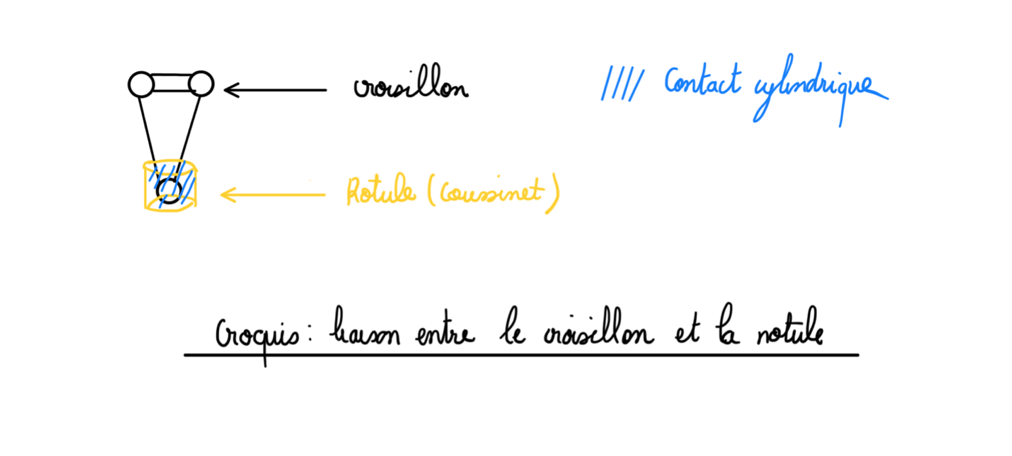 croisillon
Contact cylindrique
Rotule (Coussinet)
Croquis : liaison entre le croisillon et la rotule